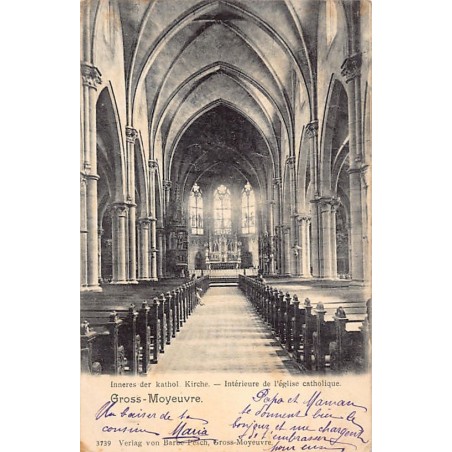 Inneres der kathol. Kirche. — Intérieure de l'église catholique.
Gross-Moyeuvre.
Un baiser de ta
cousine Maria
Papa et Maman
te donnent bien le
bonjour et me chargent
de t'embrasser
pour eux
3739 Verlag von Barbe Pesch, Gross-Moyeuvre.